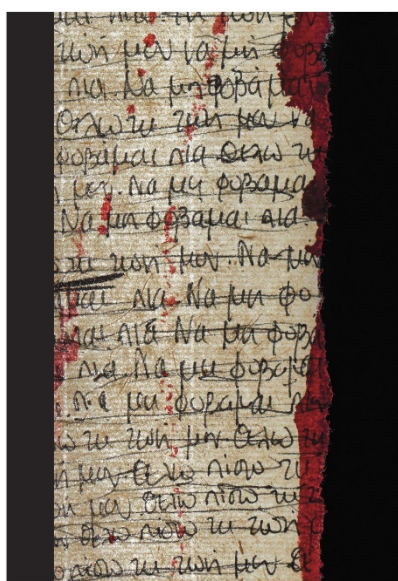 πια τη ζωή μου
ζωή μου να μη φοβα
πια. Να μη φοβάμαι
Θελω τη ζωη μου να
φοβάμαι πια Θελω τη
μου. Να μη φοβαμαι
Να μη φοβαμαι πια
τη ζωη μου. Να μη
μαι πια Να μη φο
μαι πια Να μη φοβα
πια Να μη φοβαμαι
Να μη φοβαμαι πια
τη ζωη μου Θελω τη
μου Θελω πισω τη
μου Θελω πισω τη ζ
Θελω πισω τη ζωη μ
πισω τη ζωη μου Θε